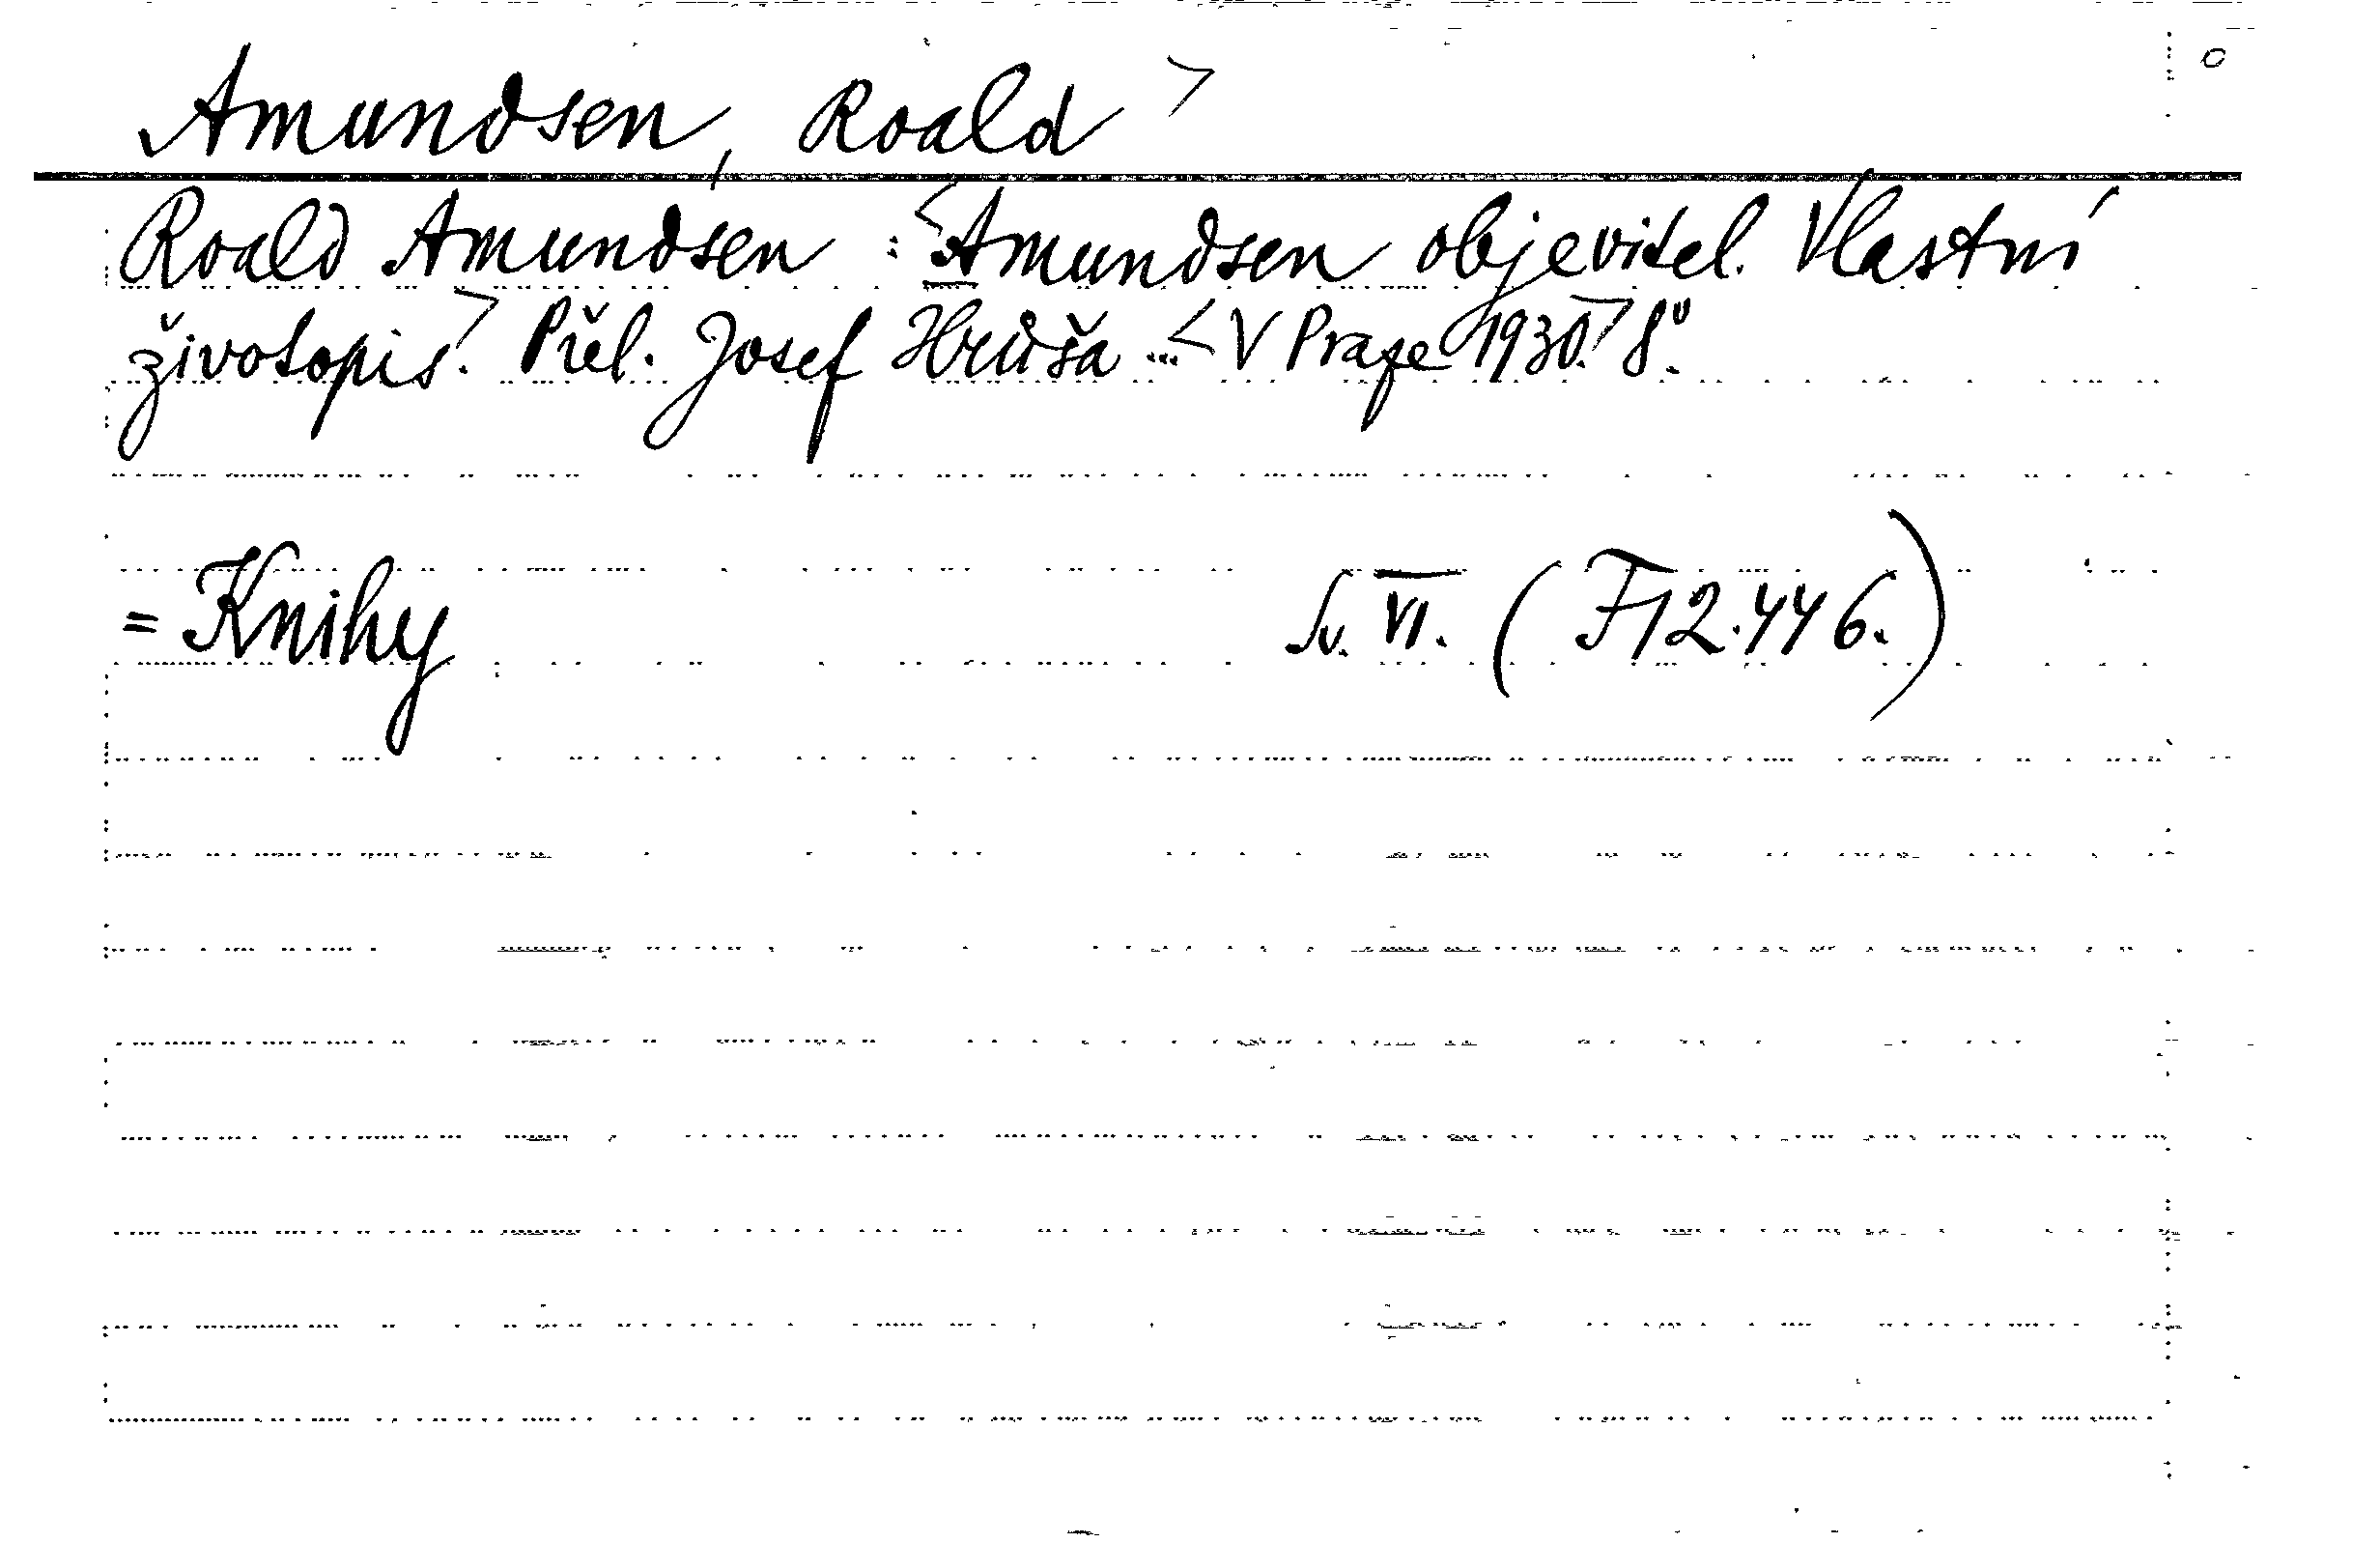 Amundsen, Roald >
Roald Amundsen : <Amundsen objevitel. Vlastní
životopis.> Přel. Josef Hrůša ... <V Praze 1930.> 8º.
= Knihy Sv. VI. (F 12.446.)